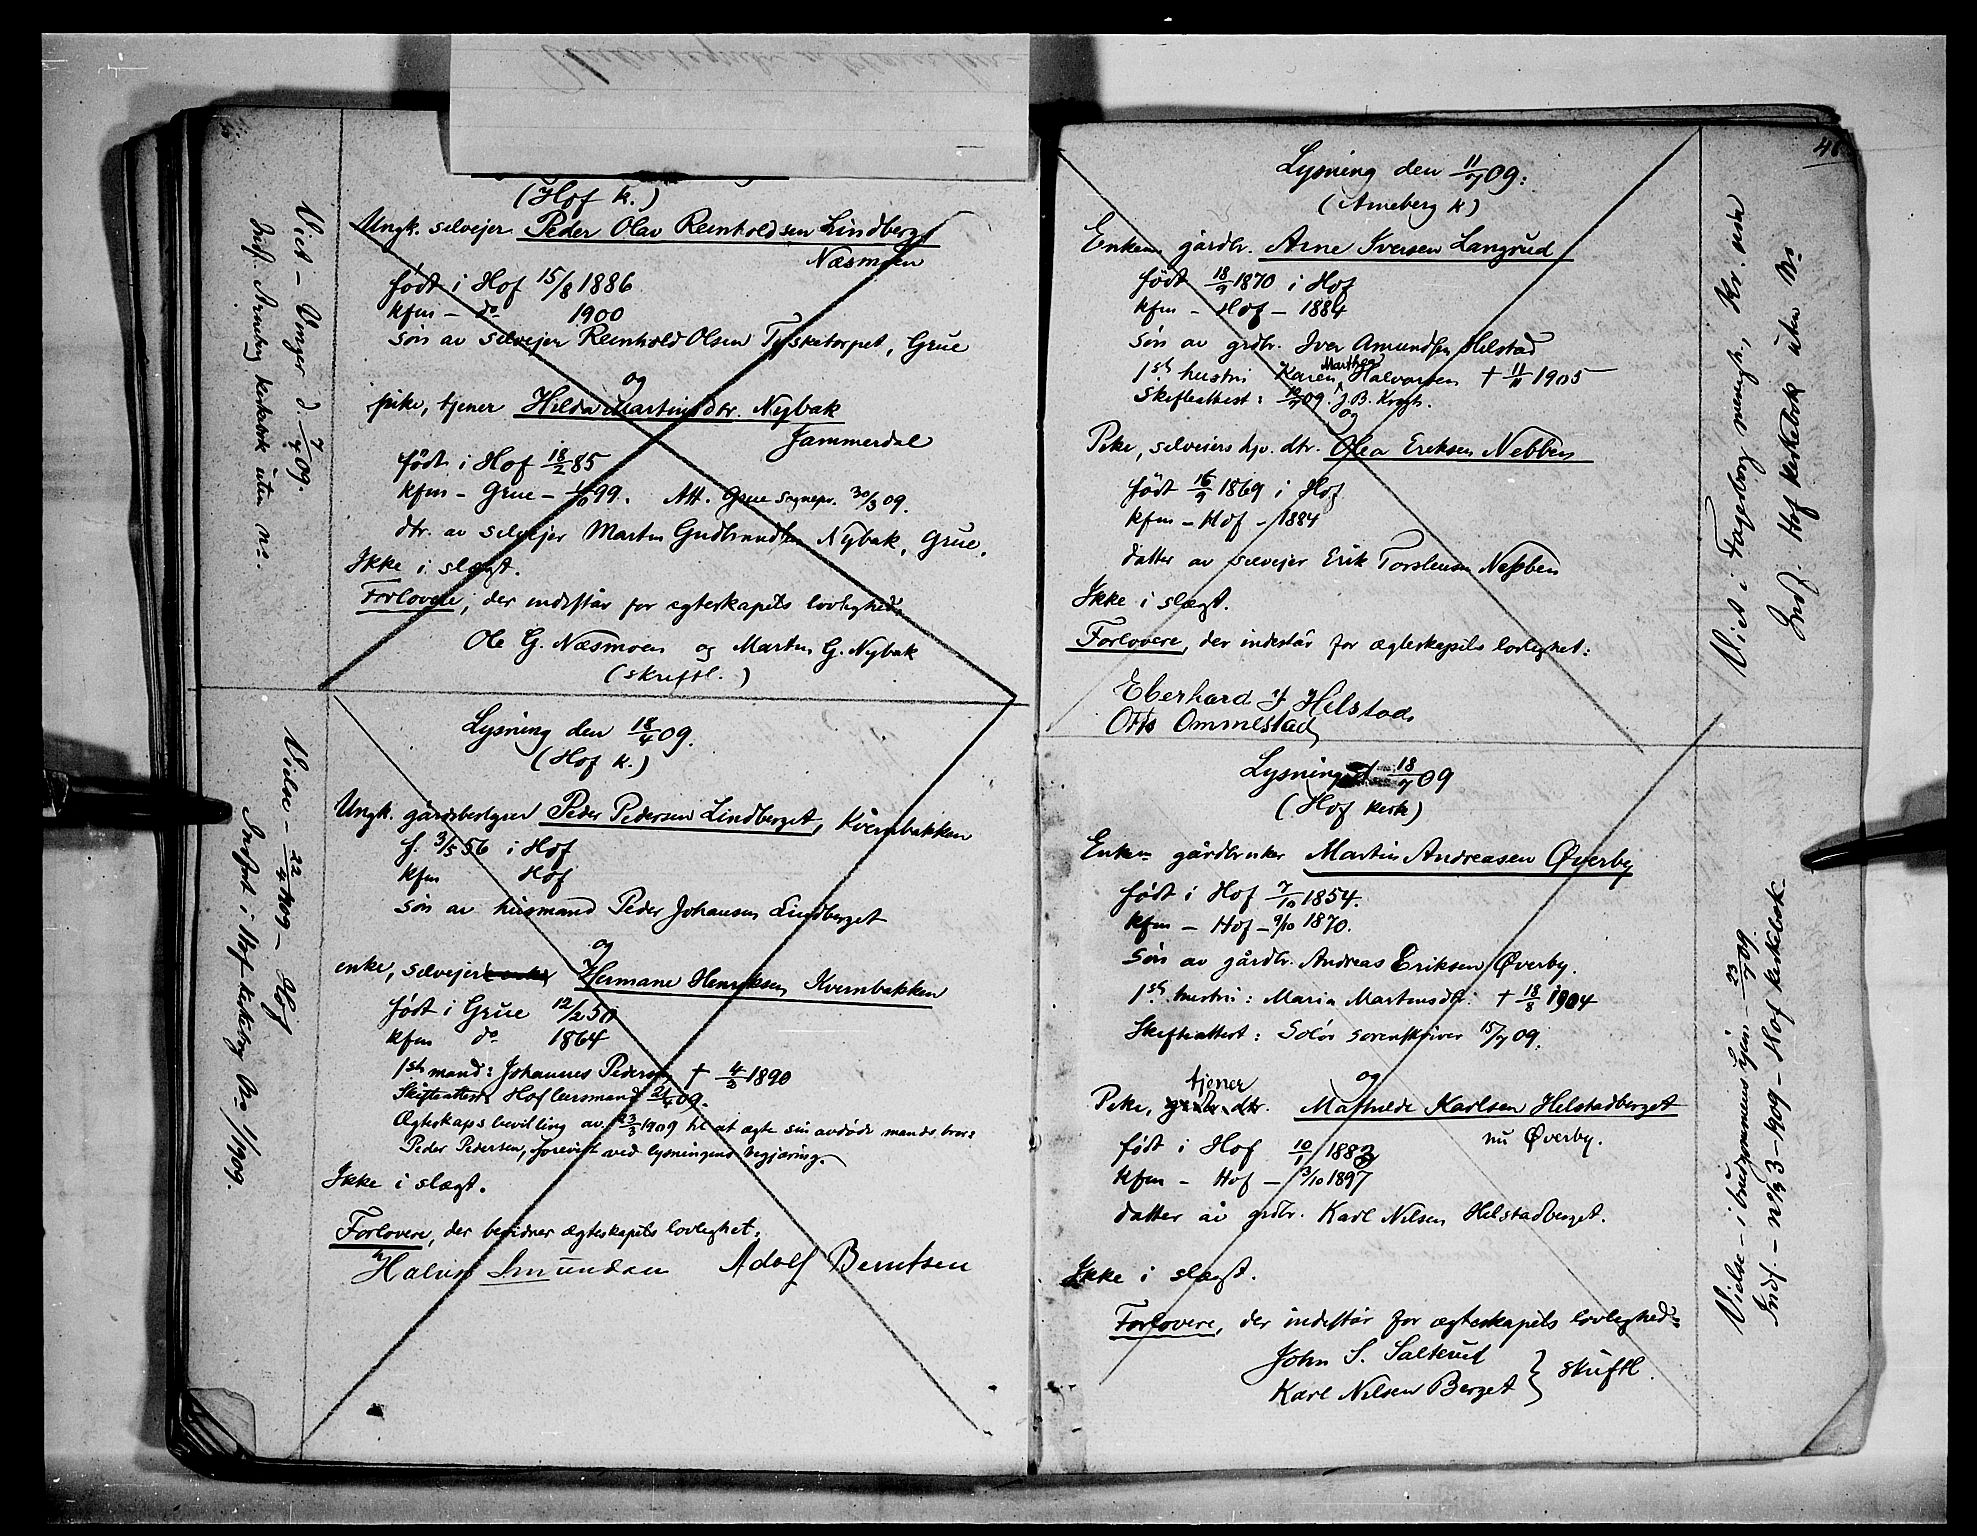 (Hof k.)
Ungk. selvejer Peder Olav Reinholdsen Lindberget
Næsmoen
født i Hof 15/8 1886
kfm – do 1900
søn av selvejer Reinhold Olsen Tysketorpet, Grue
og
pike, tjener Hilda Martinsdtr. Nybak
Jammerdal
født i Hof 18/2 85
kfm – Grue – 99. Att. Grue sognepr. 30/3 09.
dtr. av selvejer Martin Gudbrandsen Nybak, Grue.
Ikke i slægt.
Forlovere, der indestår for ægteskapets lovlighed:
Ole G. Næsmoen og Martin G. Nybak
(skriftl.)
Viet – Vinger d. 7/4 09.
Indf. Arneberg kirkebok uten No.
Lysning den 18/4 09.
(Hof k.)
Ungk. gårdsbestyrer Peder Pedersen Lindberget, Kvernbakken
f. 3/5 56 i Hof
kfm Hof
søn av husmand Peder Johansen Lindberget
og
enke, selvejer Hermane Henriksen Kvernbakken
født i Grue 12/2 50
kfm do 1864
1ste mand: Johannes Pedersen † 4/2 1890
Skifteattest Hof lensmand 21/4 09.
Ægteskapsbevilling av 23/3 1909 til at ægte sin avdøde mands bror:
Peder Pedersen, forevist ved lysningens begjæring.
Ikke i slægt.
Forlovere, der bevidner ægteskapets lovlighet:
Halvor Amundsen Adolf Berntsen
Vielse – 22/4 1909 – Hof
Indført i Hof kirkebog No 1/1909.
Lysning den 11/7 09:
(Arneberg k)
Enkem. gårdbr. Arne Iversen Langrud
født 18/9 1870 i Hof
kfm – Hof – 1884
søn av grdbr. Iver Amundsen Helstad
1ste hustru Karen Marthea Halvorsen † 11/11 1905
Skifteattest: 09. J. B. Krogh.
og
Pike, selveiers hjv. dtr. Olea Eriksen Nebben
født 16/9 1869 i Hof
kfm – Hof – 1884
datter av selvejer Erik Torstensen Nebben
Ikke i slægt.
Forlovere, der indestår for ægteskapets lovlighet:
Eberhard J Helstad
Otto Ommelstad
Viet i Fagerborg menigh., Kr.
Indf. Hof kirkebok uten No
Lysning d 18/7 09
(Hof kirk)
Enkem gårdbruker Martin Andreasen Øverby
født i Hof 7/10 1854.
kfm – Hof – 9/10 1870.
søn av gårdbr. Andreas Eriksen Øverby.
1ste hustru: Maria Martinsdtr. † 18/8 1904
Skifteattest: Solør sorenskriver 15/7 09.
og
tjener
Pike, grdbr. dtr. Mathilde Karlsen Helstadberget
nu Øverby.
født i Hof 10/1 1883
kfm – Hof – 3/10 1897
datter av grdbr. Karl Nilsen Helstadberget.
Ikke i slægt.
Forlovere, der indestår for ægteskapets lovlighed:
John S. Salterud
Karl Nilsen Berget } skriftl.
Vielse – i brudgommens hjem – 23/7 09.
Indf. – No 3 – 1909 – Hof kirkebok.